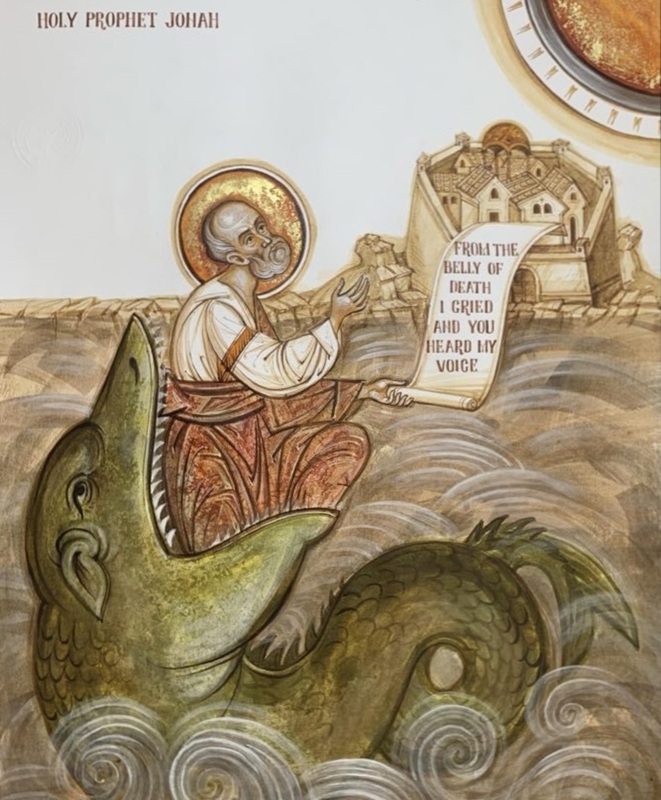 HOLY PROPHET JONAH
FROM THE
BELLY OF
DEATH
I CRIED
AND YOU
HEARD MY
VOICE